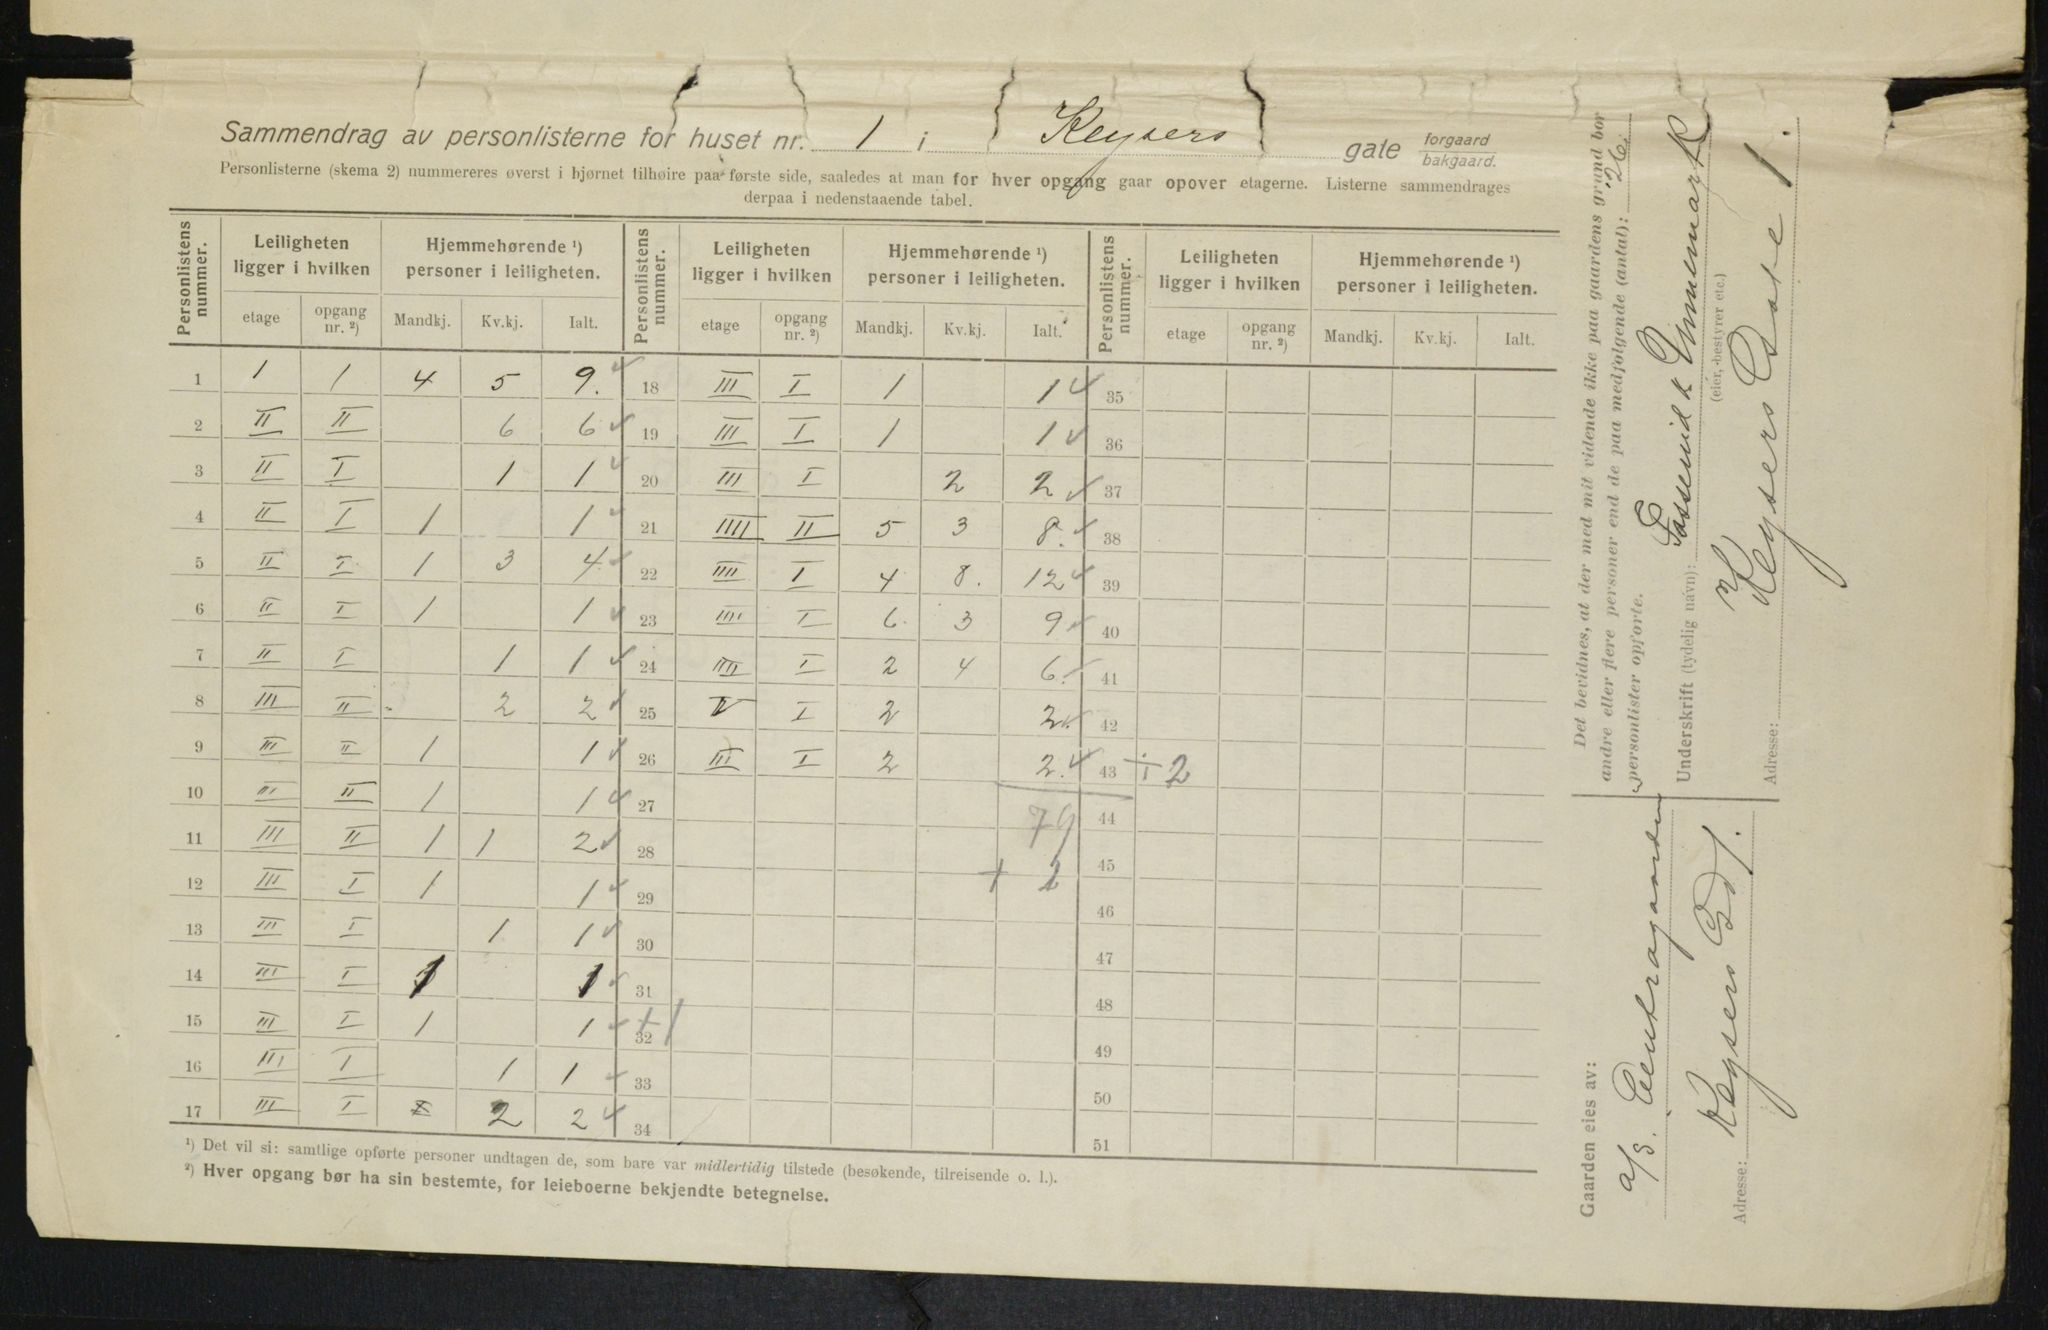 Sammendrag av personlisterne for huset nr. 1 i Keysers gate forgaard bakgaard.
Personlisterne (skema 2) nummereres øverst i hjørnet tilhøire paa første side, saaledes at man for hver opgang gaar opover etagerne. Listerne sammendrages
derpaa i nedenstaaende tabel.
Personlistens nummer. Leiligheten ligger i hvilken Hjemmehørende ¹) personer i leiligheten. Personlistens nummer. Leiligheten ligger i hvilken Hjemmehørende ¹) personer i leiligheten. Personlistens nummer. Leiligheten ligger i hvilken Hjemmehørende ¹) personer i leiligheten.
etage opgang nr. ²) Mandkj. Kv.kj. Ialt. etage opgang nr. ²) Mandkj. Kv.kj. Ialt. etage opgang nr. ²) Mandkj. Kv.kj. Ialt.
1 1 1 4 5 9. 18 III I 1 1 35
2 II II 6 6 19 III I 1 1 36
3 II I 1 1 20 III I 2 2 37
4 II I 1 1 21 IIII II 5 3 8. 38
5 II I 1 3 4 22 IIII I 4 8. 12 39
6 II I 1 1 23 IIII I 6 3 9 40
7 II I 1 1 24 IIII I 2 4 6. 41
8 III II 2 2 25 V I 2 2. 42
9 III II 1 1 26 III I 2 2. 43 ÷ 2
10 III II 1 1 27 79 44
11 III II 1 1 2 28 + 2 45
12 III I 1 1 29 46
13 III I 1 1 30 47
14 III I 1 1 31 48
15 III I 1 1 32 +1 49
16 III I 1 1 33 50
17 III I 2 2 34 51
¹) Det vil si: samtlige opførte personer undtagen de, som bare var midlertidig tilstede (besøkende, tilreisende o. l.).
²) Hver opgang bør ha sin bestemte, for leieboerne bekjendte betegnelse.
Det bevidnes, at der med mit vidende ikke paa gaardens grund bor
andre eller flere personer end de paa medfølgende (antal): 26.
personlister opførte.
Underskrift (tydelig navn):
(eier, bestyrer etc.)
Adresse: Keysers Gate 1.
Gaarden eies av:
a/s. Centralgaarden
Adresse: Keysers Gd 1.